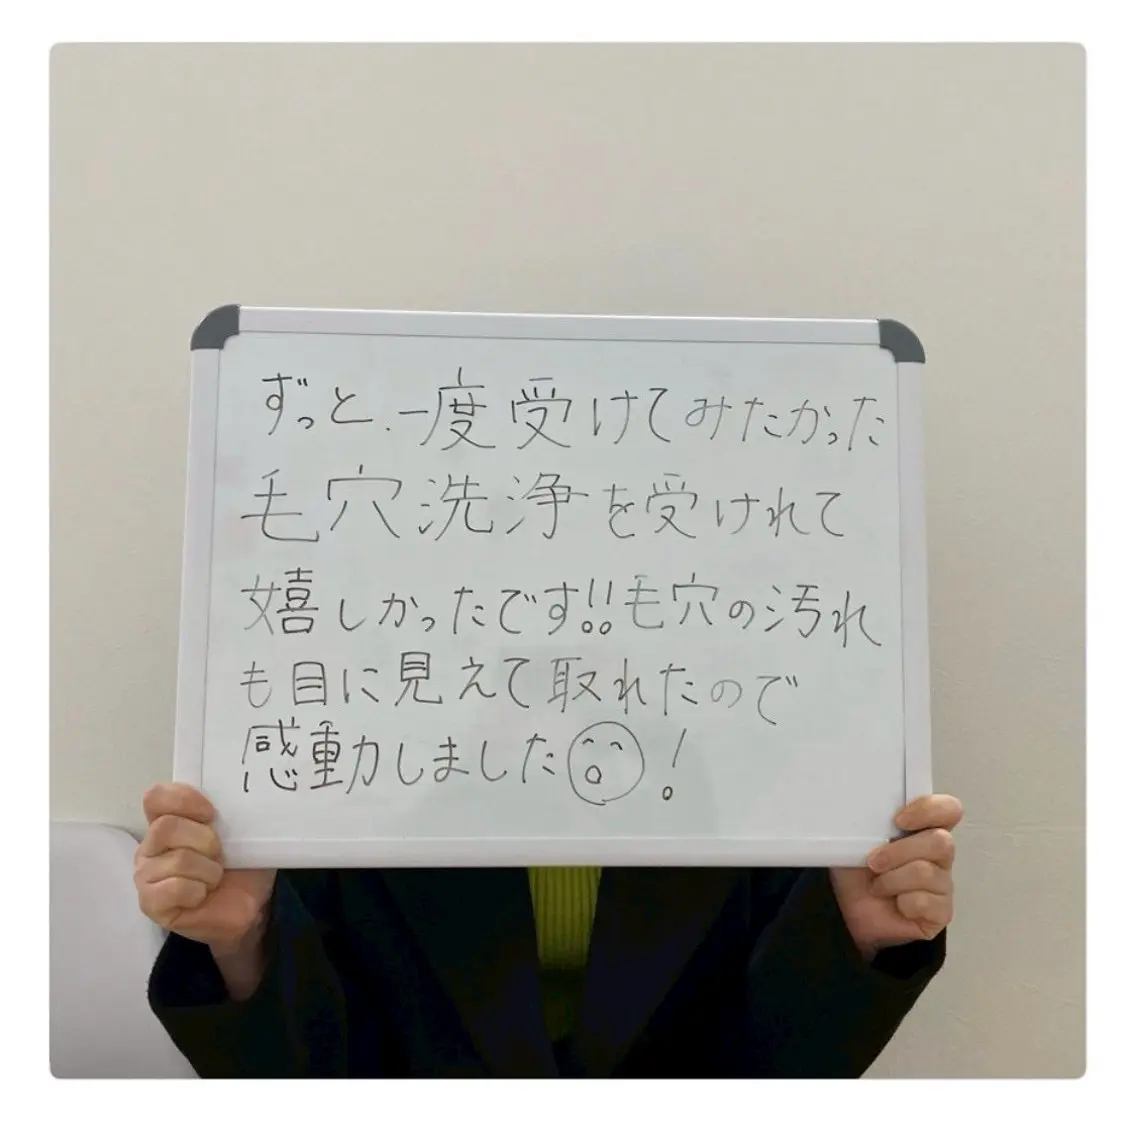 ずっと、一度受けてみたかった
毛穴洗浄を受けれて
嬉しかったです!!毛穴の汚れ
も目に見えて取れたので
感動しました!